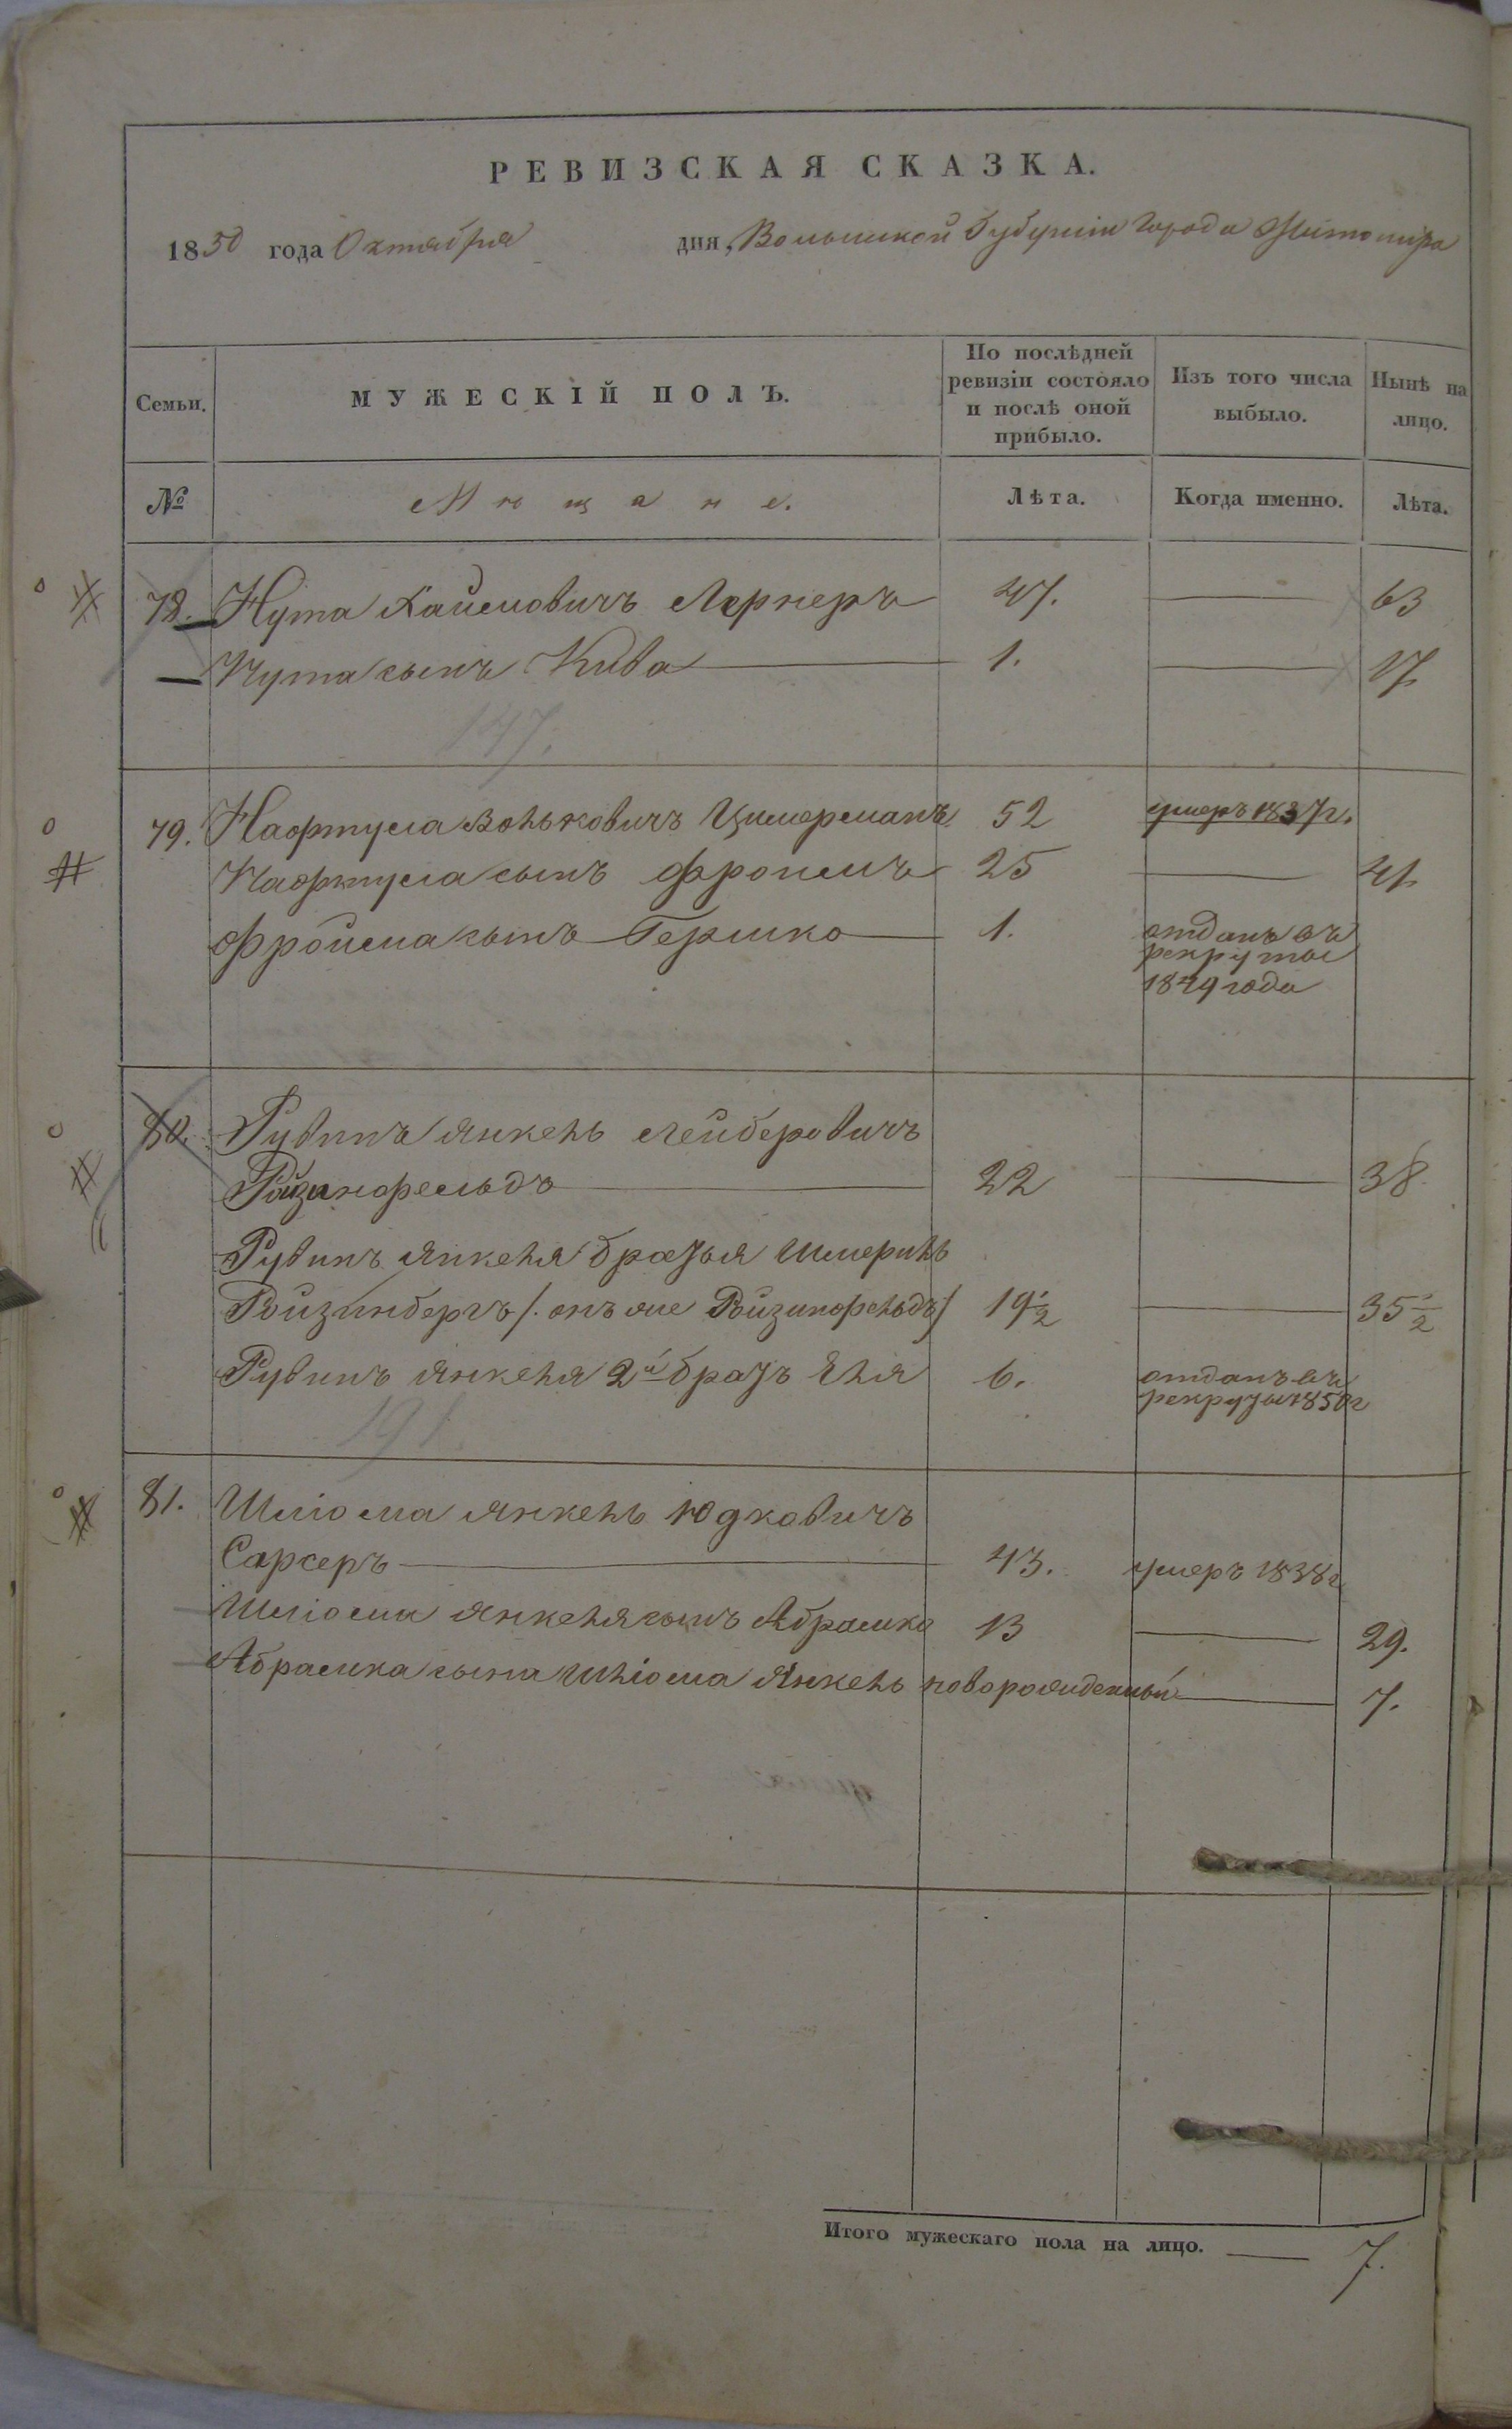 РЕВИЗСКАЯ СКАЗКА.
1850 года Октября дня, Волынской Губерніи Города Житомира
Семьи. МУЖЕСКІЙ ПОЛЪ. По послѣдней ревизіи состояло и послѣ оной прибыло. Изъ того числа выбыло. Нынѣ на лицо.
№ Мѣщане. Лѣта. Когда именно. Лѣта.
78. Нута Хаимовичъ Лернеръ 47. 63
Нута сынъ Кива 1. 17
147.
79. Нафтула Вольковичъ Цимерманъ 52 умеръ 1837г.
Нафтула сынъ Фроимъ 25 41
Фройма сынъ Гершко 1. отданъ въ
рекруты
1849 года
80. Рувинъ Янкель Лейберовичъ
Ройзинфельдъ 22 38
Рувинъ Янкеля братья Шмериль
Ройзинбергъ /. онъ же Ройзинфельдъ/ 19½ 35½
Рувинъ Янкеля 2й братъ Эля 6. отданъ въ
рекруты 1850г
191.
81. Шлiома Янкель Юдковичъ
Сарсеръ 43. умеръ 1838г
Шлiома Янкеля сынъ Абрамко 13 29.
Абрамка сына Шлiома Янкель новорожденный 7.
Итого мужескаго пола на лицо. 7.